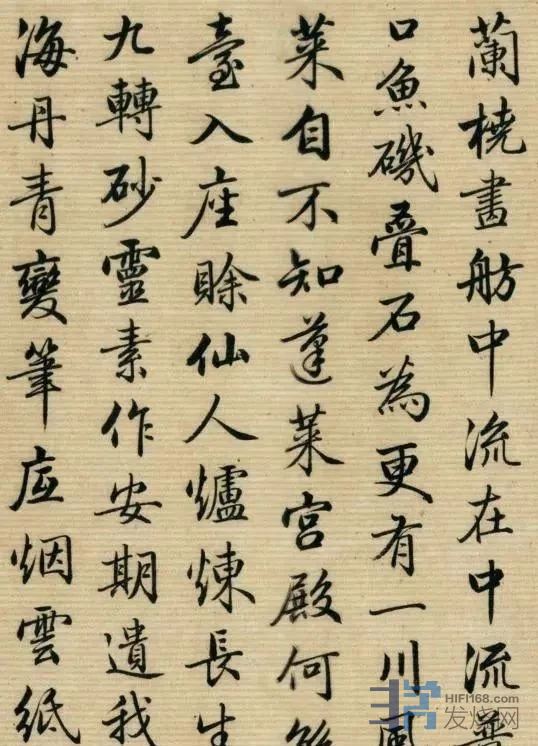 蘭橈畫舫中流在中流
口魚磯疊石為更有一川風
萊自不知蓬萊宮殿何
臺入座賒仙人爐煉長生
九轉砂靈素作安期遺我
海丹青變筆底烟雲紙
HIFI168.com
发烧网